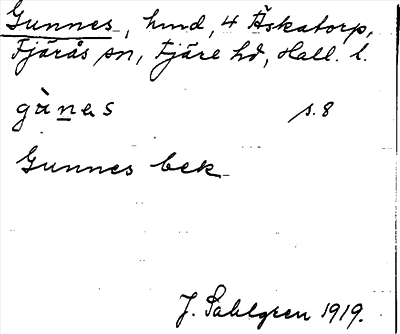 Gunnes, hmd, 4 Äskatorp,
Fjärås sn, Fjäre hd, Hall. l.
gànas s. 8
Gunnes bek.
J. Sahlgren 1919.